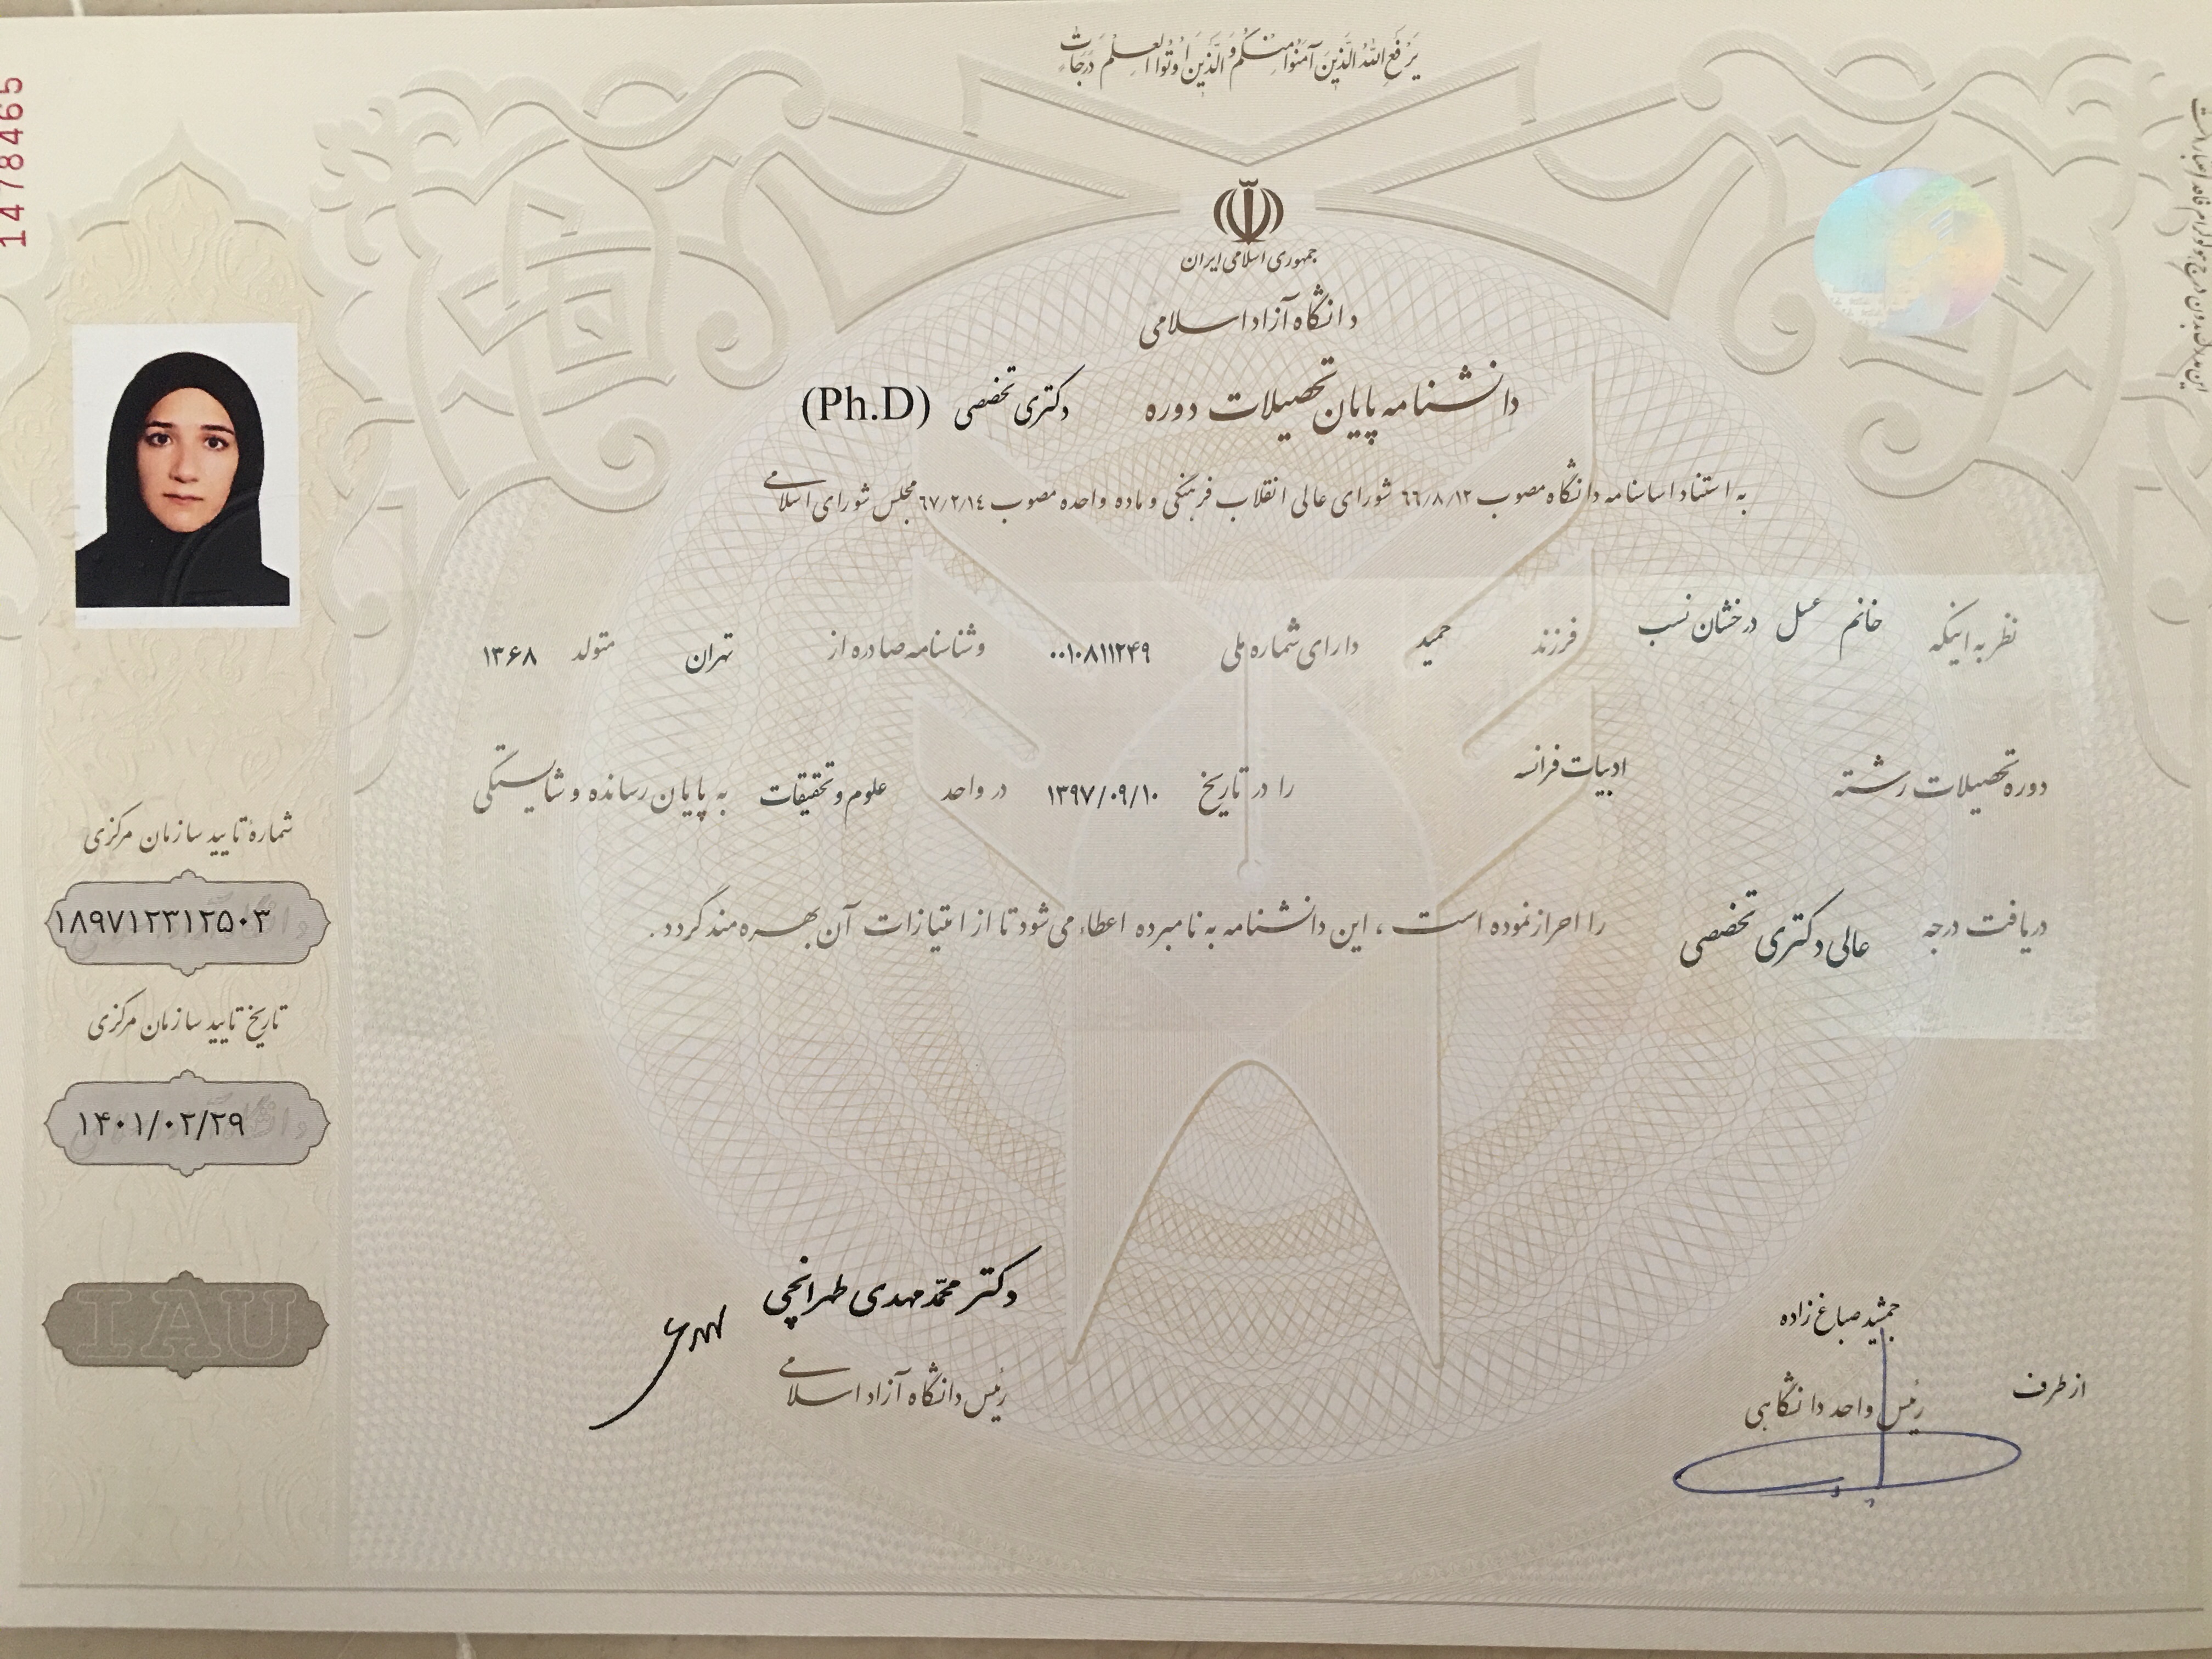 یَرْفَعِ اللهُ الَّذینَ آمَنُوا مِنْکُم وَ الَّذینَ اُوتُوا الْعِلْمَ دَرَجاتٍ
جمهوری اسلامی ایران
دانشگاه آزاد اسلامی
دانشنامه پایان تحصیلات دوره دکتری تخصصی (Ph.D)
به استناد اساسنامه دانشگاه مصوب ٦٦/٨/١٢ شورای عالی انقلاب فرهنگی و ماده واحده مصوب ٦٧/٢/١٤ مجلس شورای اسلامی
نظر به اینکه خانم عسل درخشان نسب فرزند حمید دارای شماره ملی ۰۰۱۰۸۱۱۲۴۹ و شناسنامه صادره از تهران متولد ۱۳۶۸
دوره تحصیلات رشته ادبیات فرانسه را در تاریخ ۱۳۹۷/۰۹/۱۰ در واحد علوم و تحقیقات به پایان رسانده و شایستگی
دریافت درجه عالی دکتری تخصصی را احراز نموده است ، این دانشنامه به نامبرده اعطاء می شود تا از امتیازات آن بهره مند گردد .
جمشید صباغ زاده
از طرف رئیس واحد دانشگاهی
دکتر محمّد مهدی طهرانچی
رئیس دانشگاه آزاد اسلامی
1478465
شمارهٔ تایید سازمان مرکزی
۱۸۹۷۱۲۳۱۲۵۰۳
تاریخ تایید سازمان مرکزی
۱۴۰۱/۰۲/۲۹
IAU
این مدرک بدون درج هولوگرام فاقد اعتبار است